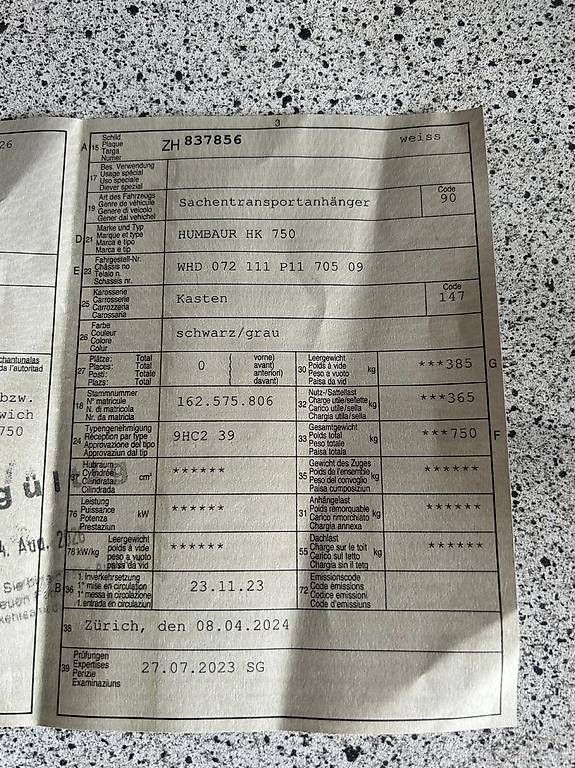 3
26
A 15 Schild
Plaque
Targa
Numer
ZH 837856 weiss
17 Bes. Verwendung
Usage spécial
Uso speciale
Diever spezial
19 Art des Fahrzeugs
Genre de véhicule
Genere di veicolo
Gener dal vehichel
Sachentransportanhänger
Code
90
D 21 Marke und Typ
Marque et type
Marca e tipo
Marca e tip
HUMBAUR HK 750
E 23 Fahrgestell-Nr.
Châssis no
Telaio n.
Schassis nr.
WHD 072 111 P11 705 09
25 Karosserie
Carrosserie
Carrozzeria
Carossaria
Kasten
Code
147
26 Farbe
Couleur
Colore
Colur
schwarz/grau
27 Plätze: Total
Places: Total
Posti: Totale
Plazs: Total
0
( vorne)
( avant)
( anteriori)
( davant)
30 Leergewicht
Poids à vide
Peso a vuoto
Paisa da vid
kg
***385 G
18 Stammnummer
N° matricule
N. di matricola
Nr. da matricla
162.575.806
32 Nutz-/Sattellast
Charge utile/sellette
Carico utile/sella
Chargia utila/sella
kg
***365
24 Typengenehmigung
Réception par type
Approvazione del tipo
Approvaziun dal tip
9HC2 39
33 Gesamtgewicht
Poids total
Peso totale
Paisa totala
kg
***750 F
Hubraum
Cylindrée
Cilindrata
Cilindrada
cm³
******
35 Gewicht des Zuges
Poids de l'ensemble
Peso del convoglio
Paisa cumposiziun
kg
******
76 Leistung
Puissance
Potenza
Prestaziun
kW
******
31 Anhängelast
Poids remorquable
Carico rimorchiato
Chargia annexa
kg
******
78 kW/kg
Leergewicht
poids à vide
peso a vuoto
paisa da vid
******
55 Dachlast
Charge sur le toit
Carico sul tetto
Chargia sin il tetg
kg
******
B 36 1. Inverkehrsetzung
1re mise en circulation
1a messa in circolazione
1. entrada en circulaziun
23.11.23
72 Emissionscode
Code émissions
Codice emissioni
Code d'emissiuns
38 Zürich, den 08.04.2024
39 Prüfungen
Expertises
Perizie
Examinaziuns
27.07.2023 SG
chantunalas
da l'autoritad
bzw.
wich
750